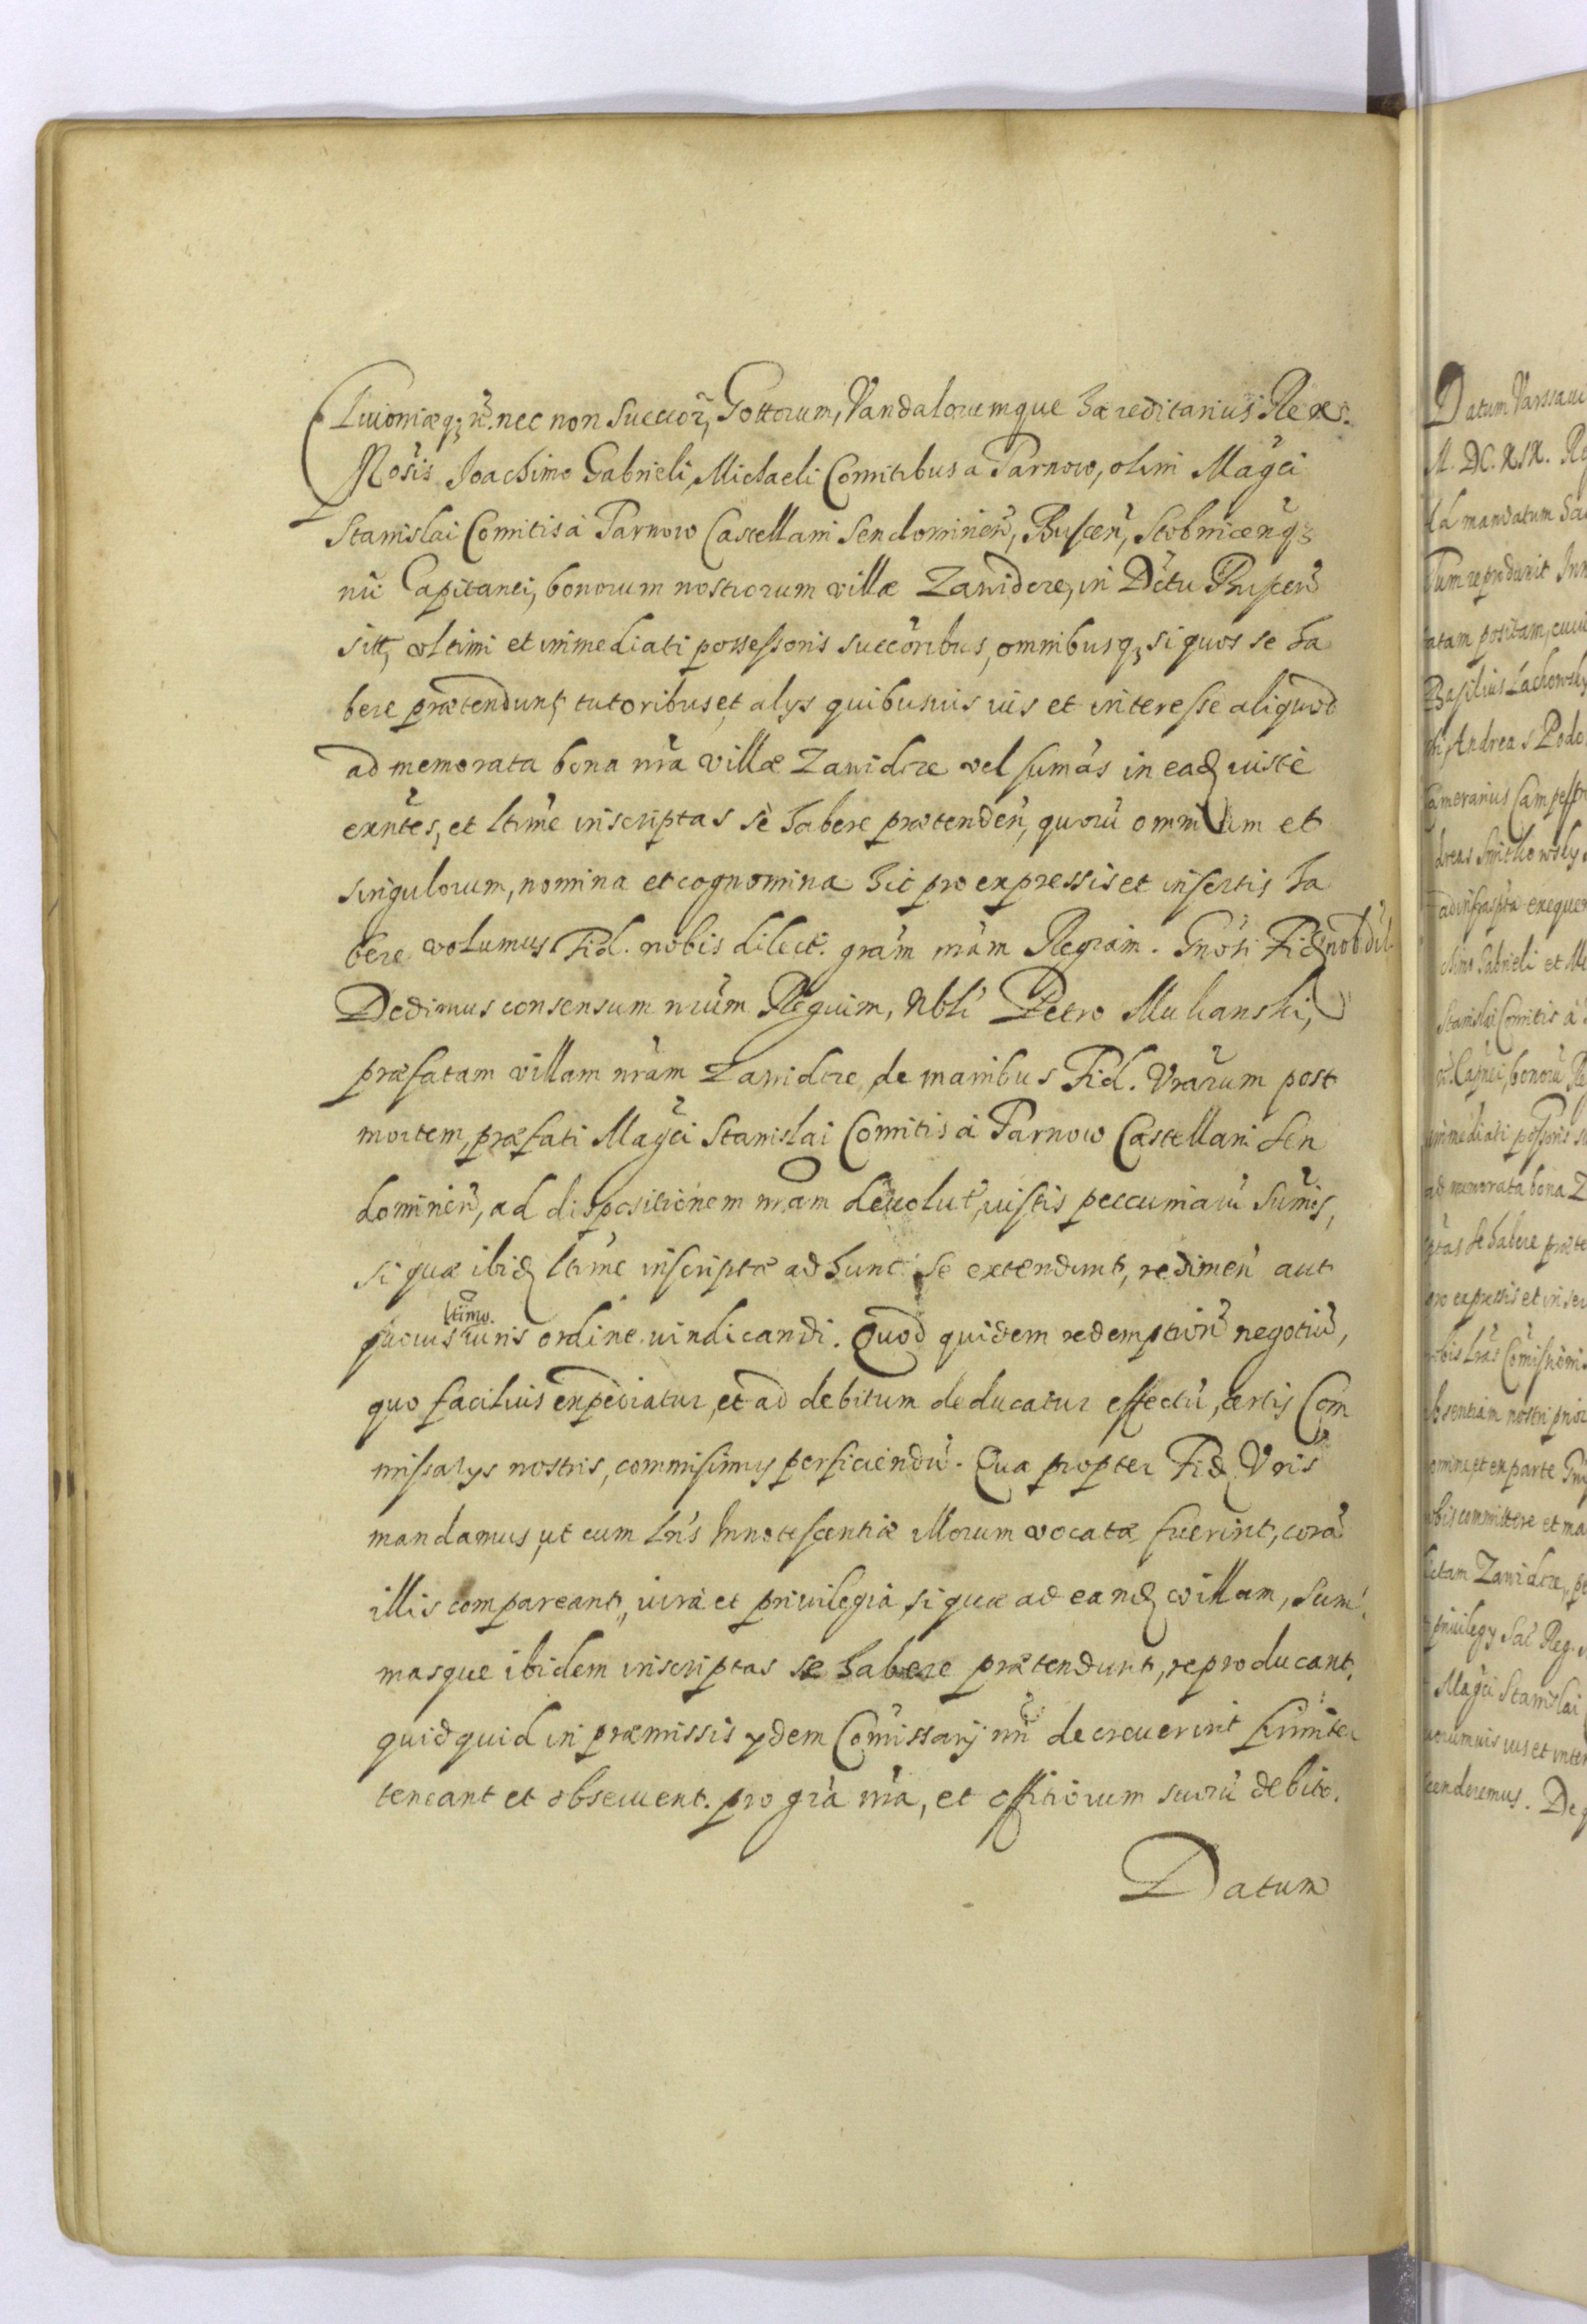 Liuoniæq; &c. nec non Suecor, Gottorum, Vandalorumque hæreditarius Rex.
Nosis Joachimo Gabrieli, Michaeli Comitibus a Tarnow, olim Magci
Stanislai Comitis à Tarnow Castellani Sendomirien, Buscen, Stobnicenq;
nri Capitanei, bonorum nostrorum villæ Zawidcze, in Dctu Buscen
sitt, vltimi et immediati possessoris succoribus, omnibusq; si quos se ha
bere prætendunt tutoribus, et alys quibusuis ius et interesse aliquod
ad memorata bona nra villæ Zawidcze vel sumas in eadq iuste
exntes, et ltime inscriptas se habere prætenden, quoru omnium et
singulorum, nomina et cognomina hic pro expressis et insertis ha
bere volumus Fid. nobis dilect. gram nram Regiam. Gnosi Fid nob dil.
Dedimus consensum nrum Regium, Nbli Petro Mulianski,
præfatam villam nram Zawidcze de manibus Fid. Vrarum post
mortem, præfati Magci Stanislai Comitis à Tarnow Castellani Sen
domirien, ad dispositionem nram deuolut, iustis peccuniaru sumis,
si quæ ibidq ltime inscriptæ ad hunc se extendunt, redimen aut
ltimo.
quouis iuris ordine uindicandi. Quod quidem redemption negotiu,
quo facilius expediatur, et ad debitum deducatur effectu, certis Com
missarys nostris, commisimus perficiendu. Qua propter Fidq Vris
mandamus, ut cum Lris Innotescentiæ illorum vocatæ fuerint, cora
illis compareant, iura et priuilegia si quæ ad eandq villam, sum
masque ibidem inscriptas se habere prætendunt, reproducant,
quidquid in præmissis ydem Comissarij nri decreuerint firmiter
teneant et obseruent. pro gra nra, et offitiorum suoru debito.
Datum
Datum Varssauiæ
M. DC. XIX. Re
Ad mandatum Sa
Tum reproduxit Inn
atam positam, cuiu
Basilius Lachowsky
Andreas Podo
Camerarius Campestr
dreas Smitkowsky
ad infraspta exequen
chimo Gabrieli et Mi
Stanislai Comitis à
Capnei, bonoru Re
immediati possoris su
ad memorata bona Z
ptas se habere præte
pro expressis et inser
nobis Lras Comissionis
absentiam nostri prior
nomine, et ex parte
nobis committere et ma
dictam Zawidcze, po
priuilegy Sac Reg.
Magci Stanislai
quorumuis ius et inter
cenderemus. De q